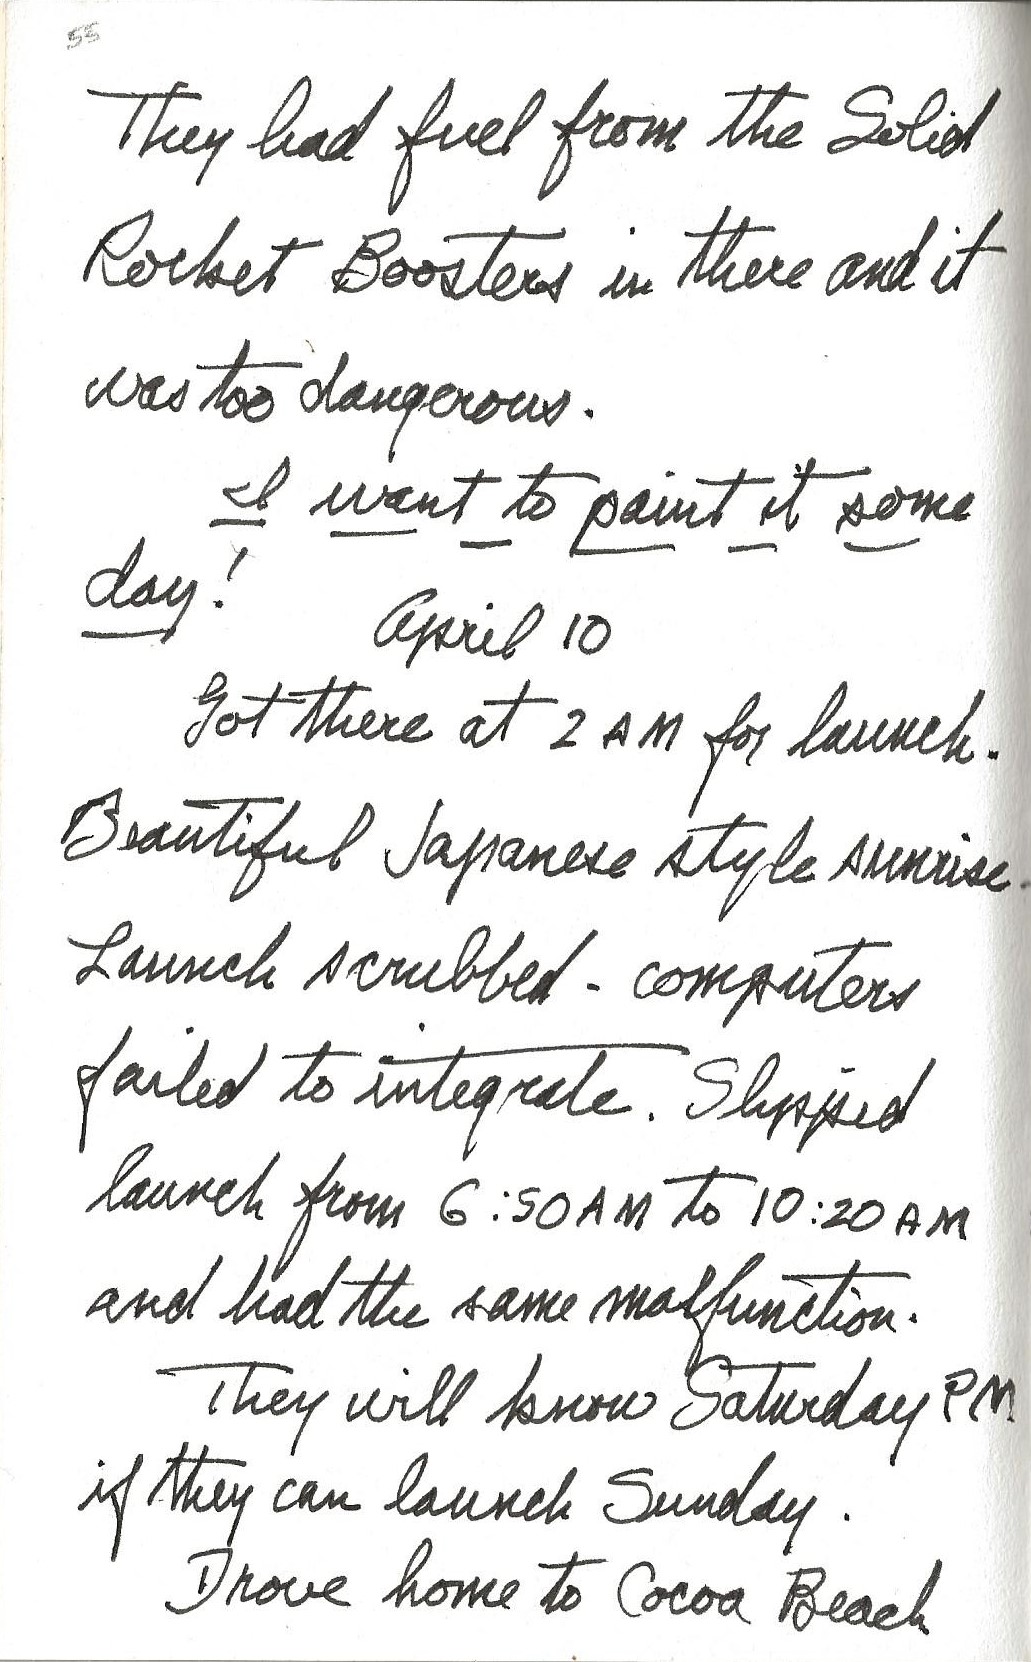 55
They had fuel from the Solid
Rocket Boosters in there and it
was too dangerous.
I want to paint it some
day!
April 10
Got there at 2 AM for launch.
Beautiful Japanese style sunrise.
Launch scrubbed - computers
failed to integrate. Slipped
launch from 6:50 AM to 10:20 AM
and had the same malfunction.
They will know Saturday PM
if they can launch Sunday.
Drove home to Cocoa Beach